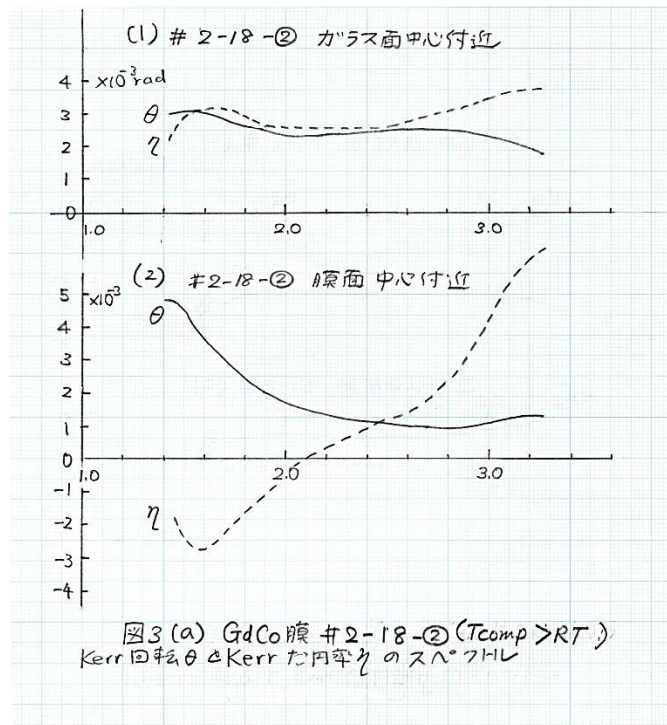 (1) # 2-18-② ガラス面中心付近
4 ×10⁻³rad
θ
3
η
2
1
0
1.0 2.0 3.0
(2) #2-18-② 膜面 中心付近
5 ×10⁻³
θ
4
3
2
1
0
1.0 2.0 3.0
-1
η
-2
-3
-4
図3(a) GdCo膜 #2-18-② (Tcomp >RT)
Kerr回転θとKerrだ円率ηのスペクトル